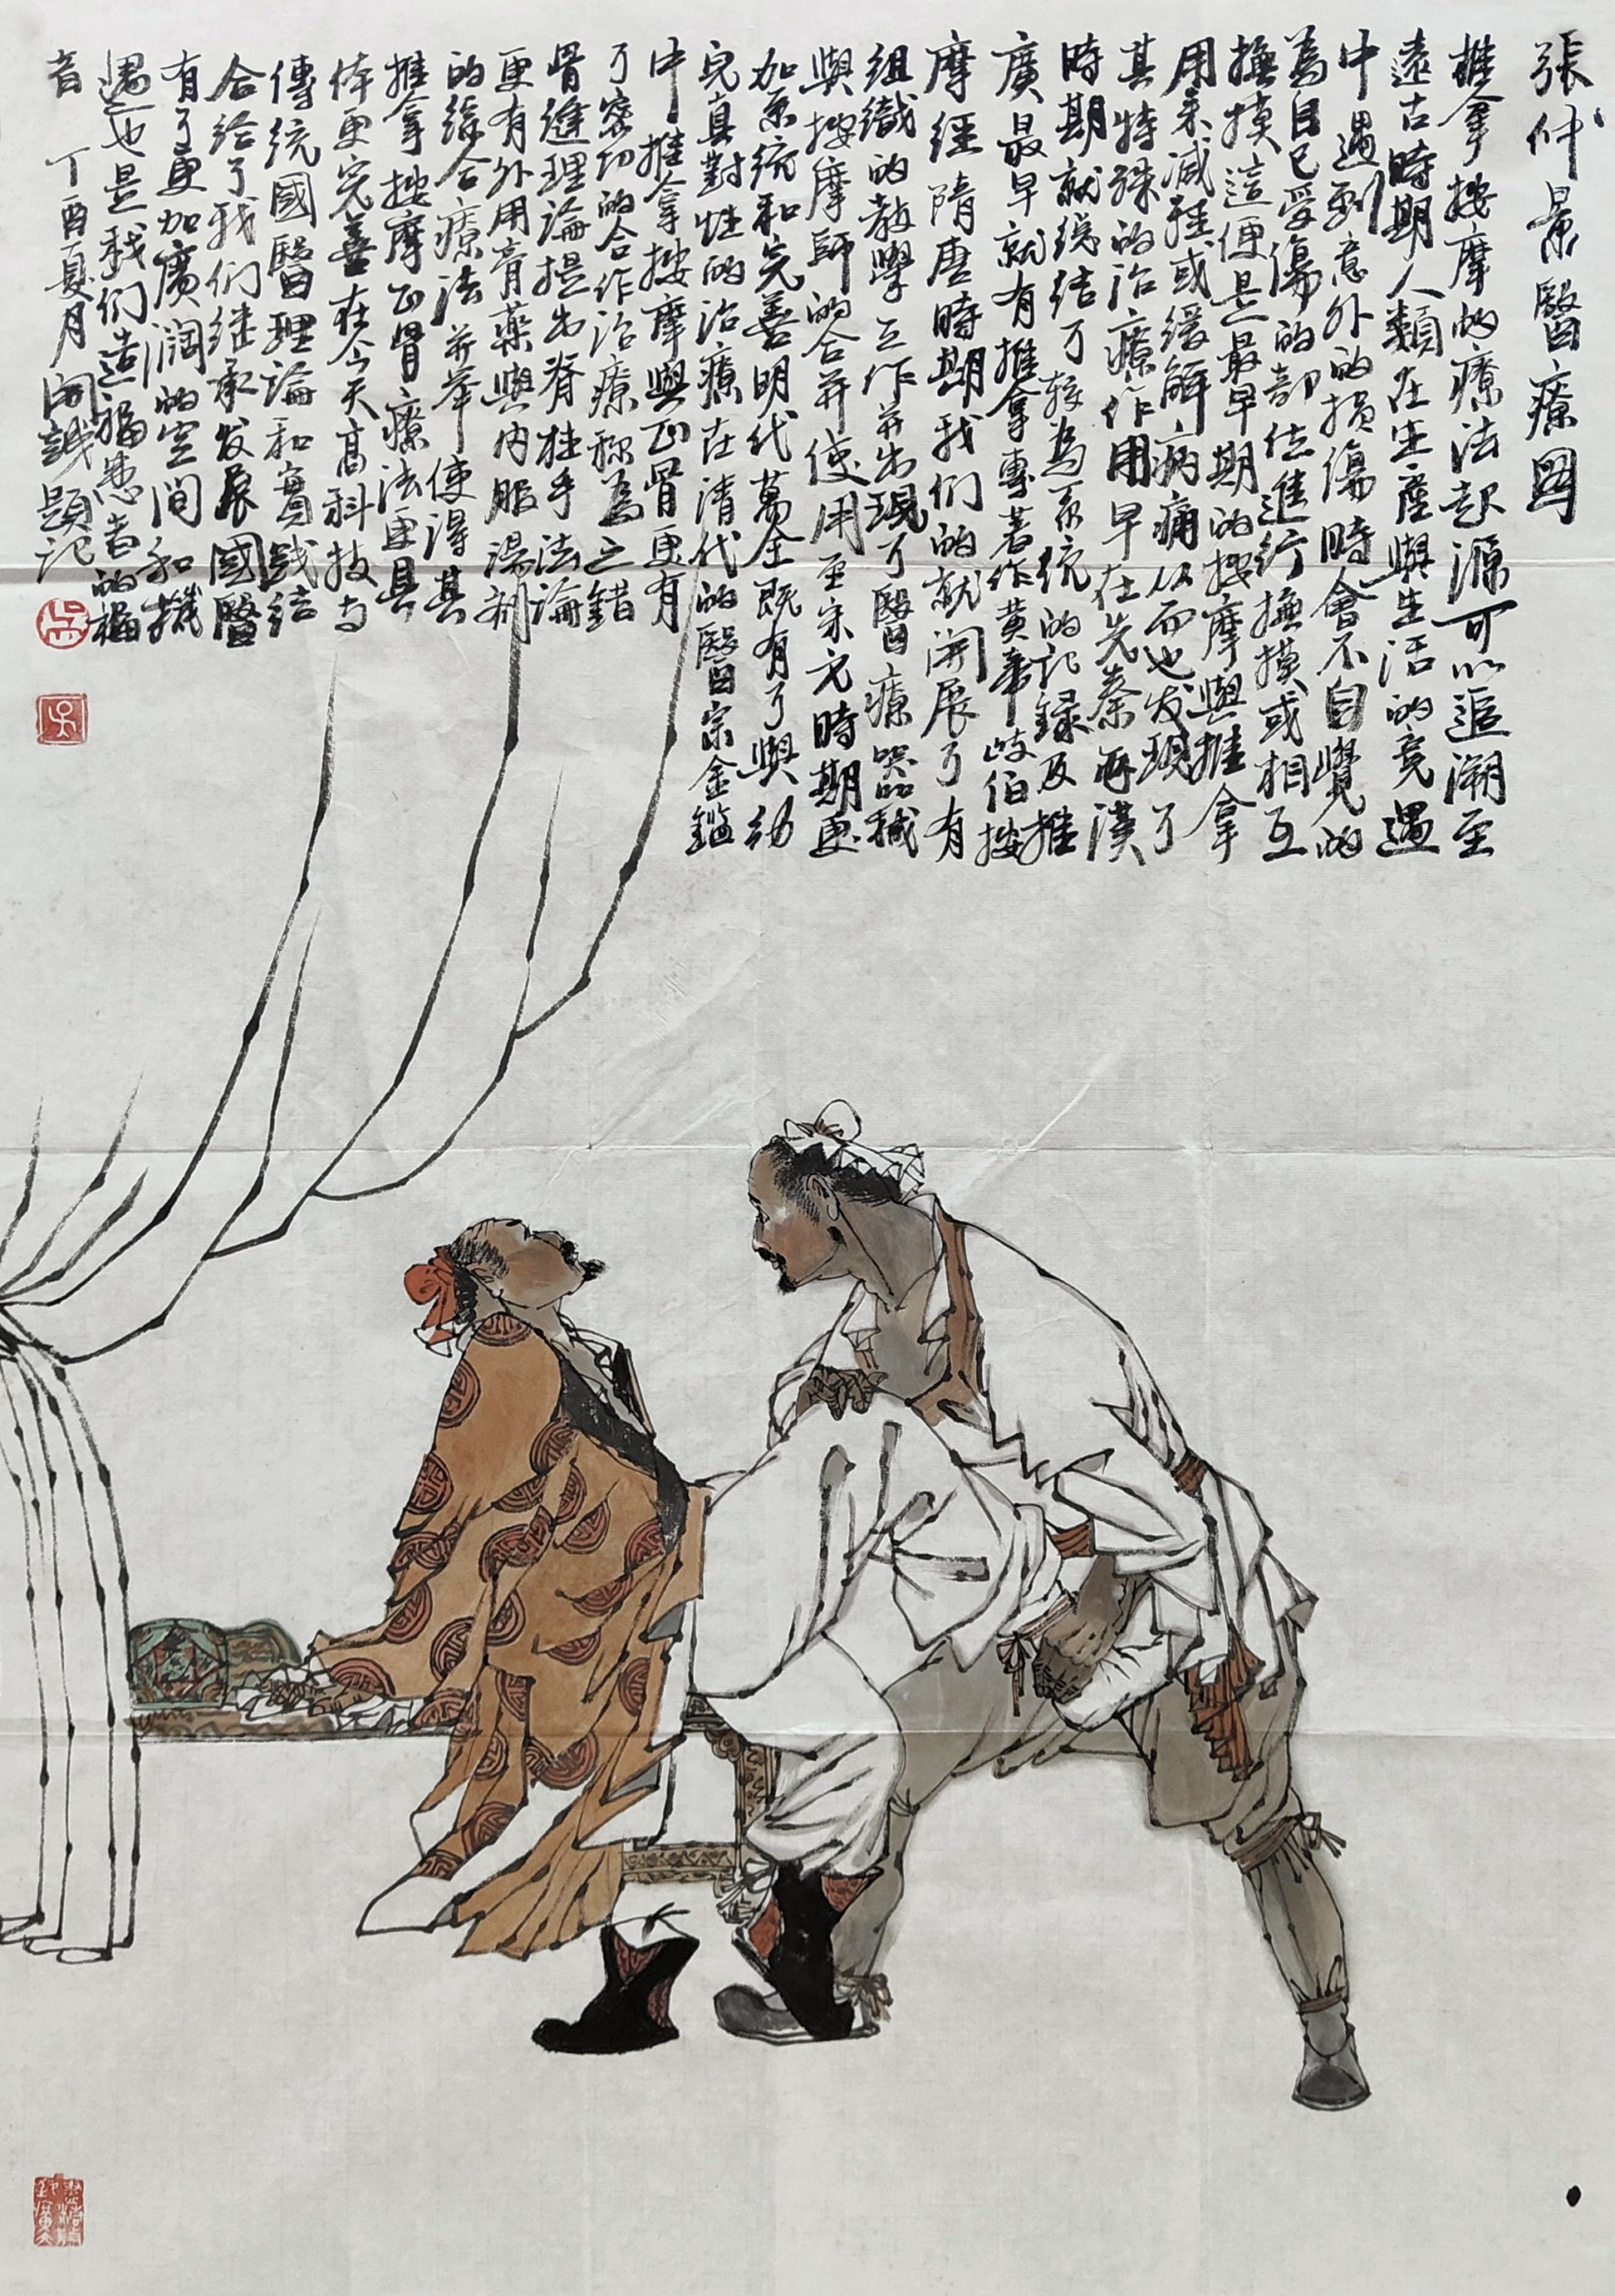 張仲景醫療图
推拿按摩的療法起源可以追溯至
遠古時期人類在生產與生活的竞遇
中遇到意外的损傷時會不自覺的
為自己受傷的部位進行撫摸或相互
撫摸這便是最早期的按摩與推拿
用来减轻或缓解病痛从而也发现了
其特殊的治療作用早在先秦再漢
時期就總结了较為系统的记録及推
廣最早就有推拿專著作黄帝岐伯按
摩經隋唐時期我们的就開展了有
组織的教學工作并出現了醫療器械
與按摩師的合并使用至宋元時期更
加系统和完善明代萬全既有了與幼
兒真對性的治療在清代的醫宗金鑑
中推拿按摩與正骨更有
了密切的合作治療称為之錯
骨缝理論提出脊柱手法論
更有外用膏薬與内服湯剂
的综合療法并举使得其
推拿按摩正骨療法更具
体更完善在今天高科技与
傳统國醫理論和實践结
合给了我们继承发展國醫
有了更加廣濶的空间和機
遇也是我们造福患者的福
音 丁酉夏月開誠題记